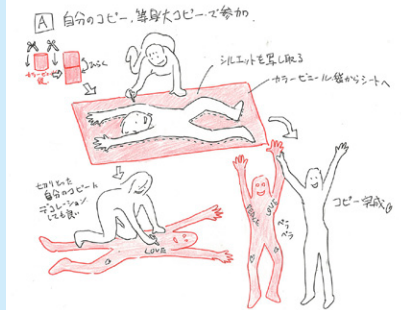 A 自分のコピー、等身大コピーで参加。
カラービニール袋
ひらく
シルエットを写し取る
カラービニール袋からシートへ
切りとった
自分のコピーに
デコレーション
しても良い
LOVE
PEACE
LOVE
ペラ
ペラ
コピー完成